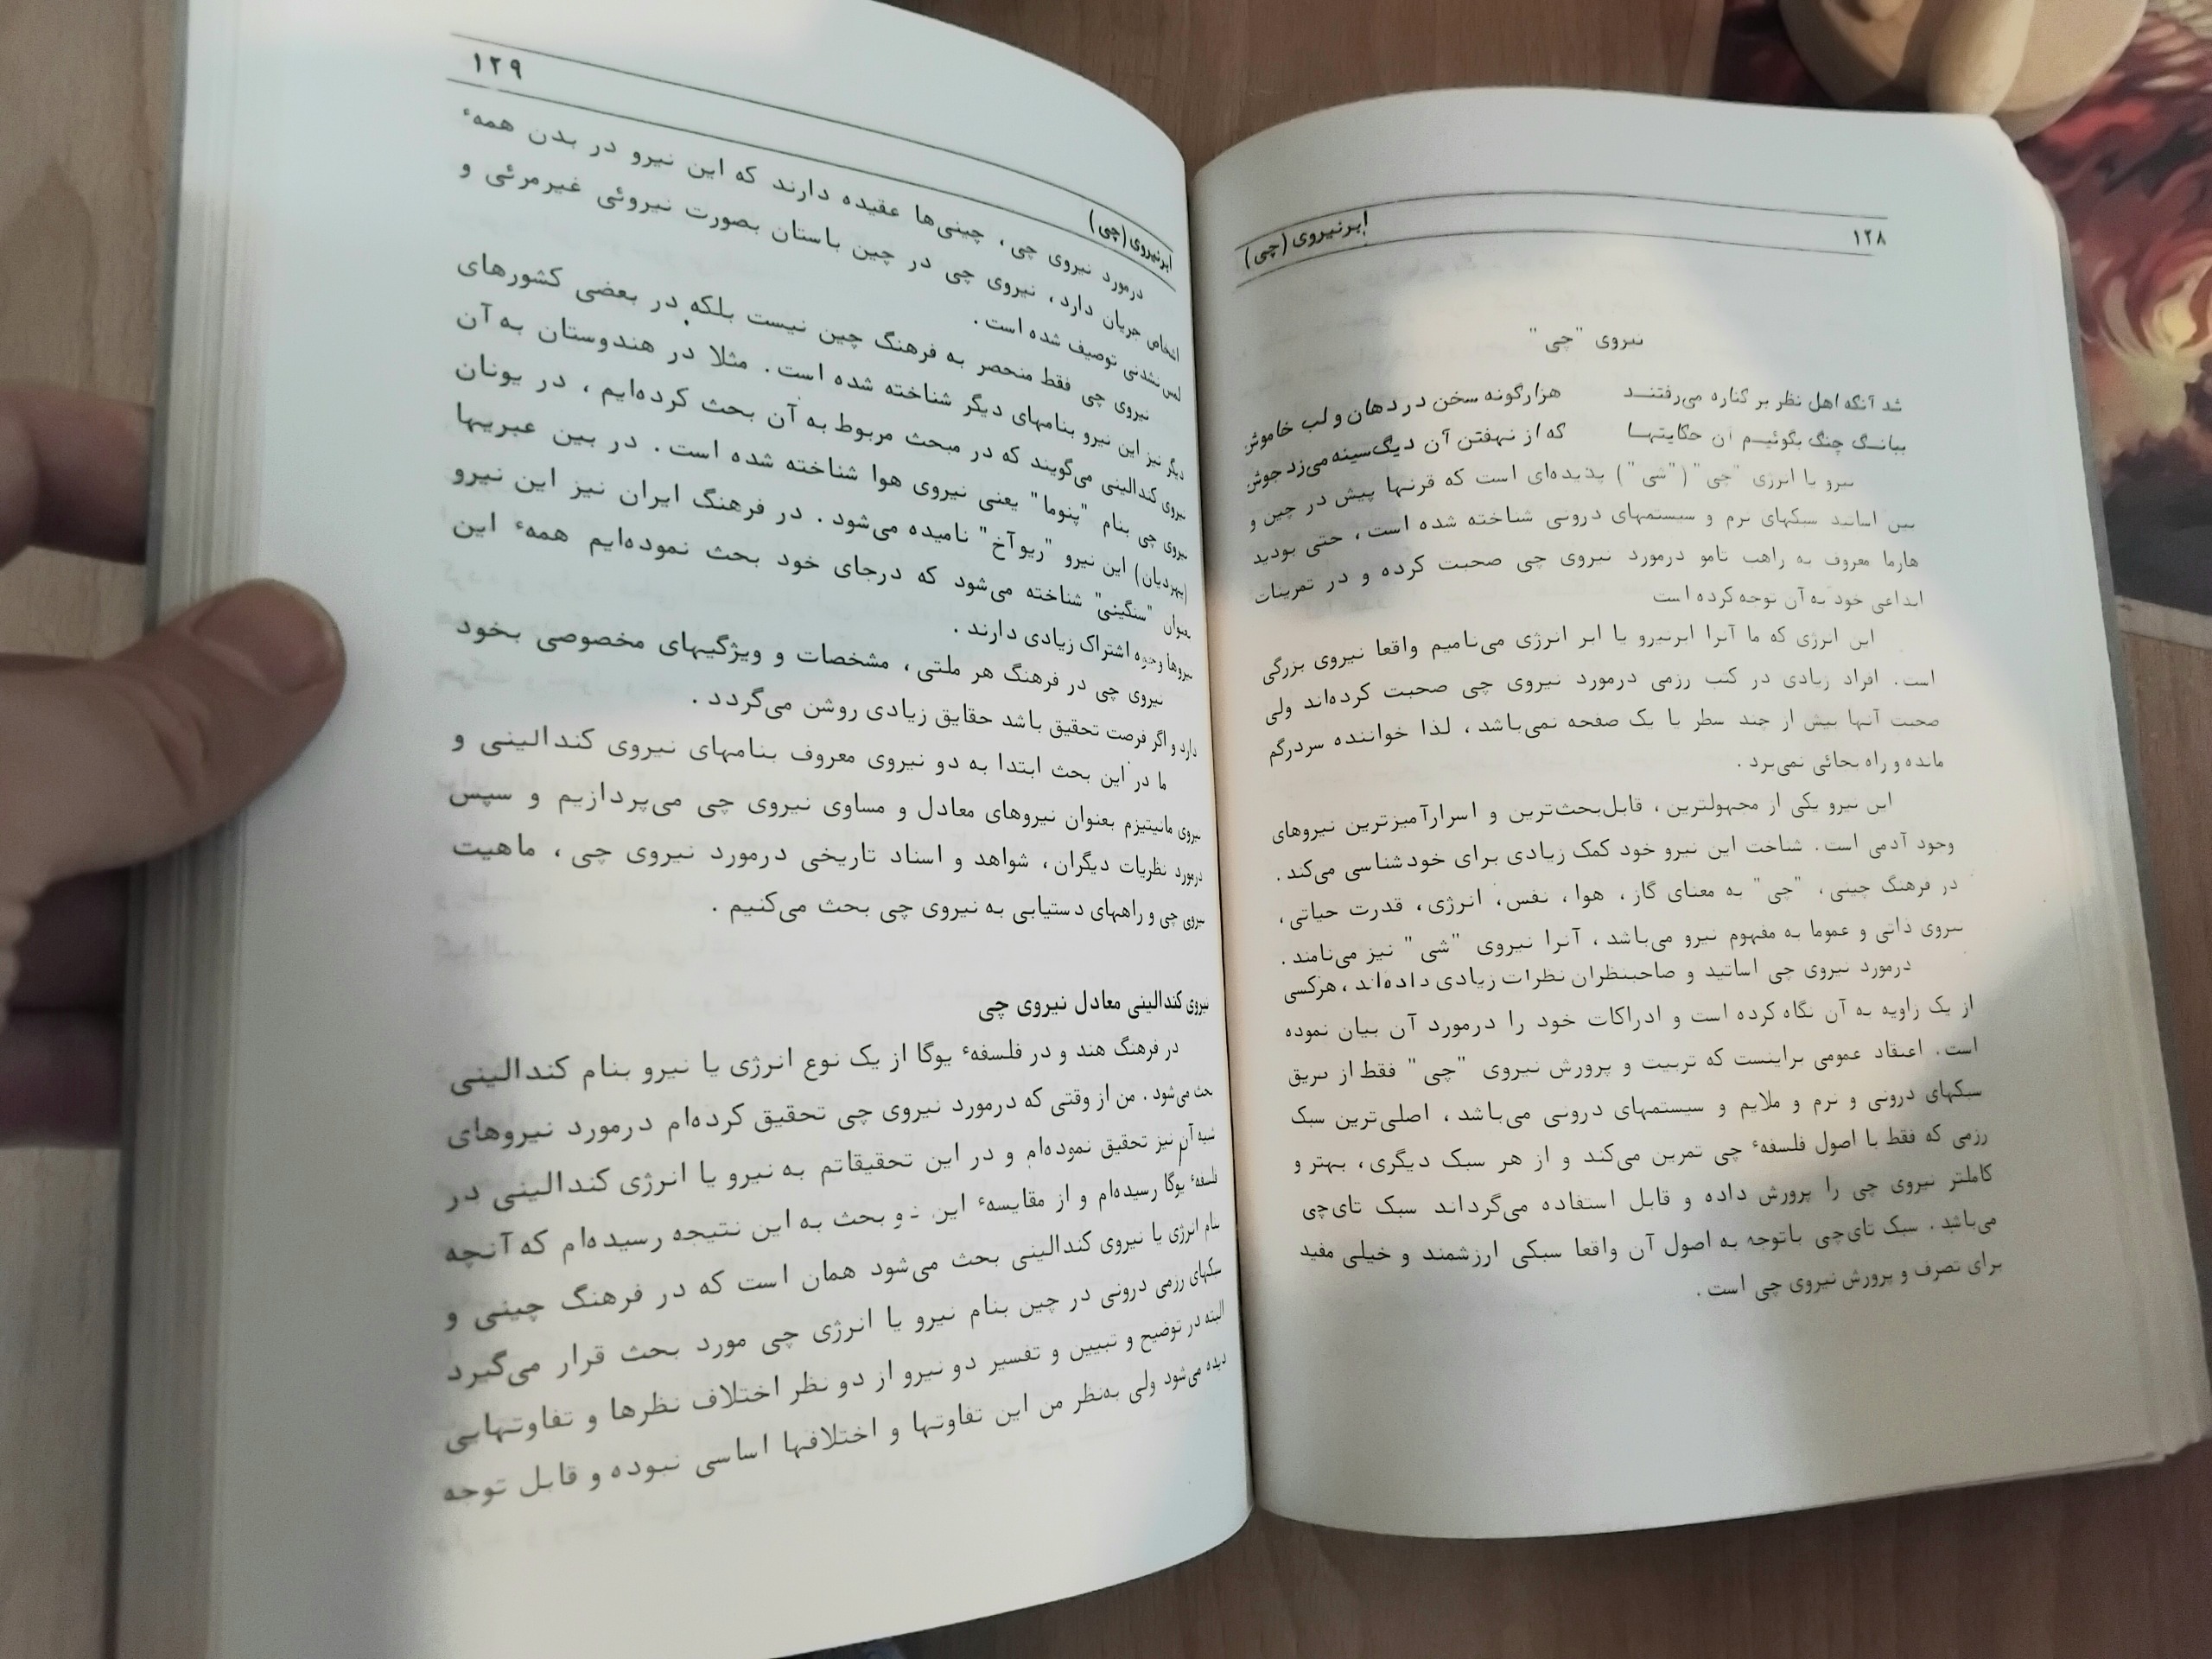 ۱۲۸
ابرنیروی (چی)
نیروی "چی"
شد آنکه اهل نظر بر کناره می‌رفتند هزارگونه سخن در دهان و لب خاموش
ببانگ چنگ بگوئیم آن حکایتها که از نهفتن آن دیگ سینه می‌زد جوش
نیرو یا انرژی "چی" ("شی") پدیده‌ای است که قرنها پیش در چین و
بین اساتید سبکهای نرم و سیستمهای درونی شناخته شده است، حتی بودید
هارما معروف به راهب تامو درمورد نیروی چی صحبت کرده و در تمرینات
ابداعی خود به آن توجه کرده است
این انرژی که ما آنرا ابرنیرو یا ابر انرژی می‌نامیم واقعا نیروی بزرگی
است. افراد زیادی در کتب رزمی درمورد نیروی چی صحبت کرده‌اند ولی
صحبت آنها بیش از چند سطر یا یک صفحه نمی‌باشد، لذا خواننده سردرگم
مانده و راه بجائی نمی‌برد.
این نیرو یکی از مجهولترین، قابل‌بحث‌ترین و اسرارآمیزترین نیروهای
وجود آدمی است. شناخت این نیرو خود کمک زیادی برای خودشناسی می‌کند.
در فرهنگ چینی، "چی" به معنای گاز، هوا، نفس، انرژی، قدرت حیاتی،
نیروی ذاتی و عموما به مفهوم نیرو می‌باشد، آنرا نیروی "شی" نیز می‌نامند.
درمورد نیروی چی اساتید و صاحبنظران نظرات زیادی داده‌اند، هرکسی
از یک زاویه به آن نگاه کرده است و ادراکات خود را درمورد آن بیان نموده
است. اعتقاد عمومی براینست که تربیت و پرورش نیروی "چی" فقط از طریق
سبکهای درونی و نرم و ملایم و سیستمهای درونی می‌باشد، اصلی‌ترین سبک
رزمی که فقط با اصول فلسفهٔ چی تمرین می‌کند و از هر سبک دیگری، بهتر و
کاملتر نیروی چی را پرورش داده و قابل استفاده می‌گرداند سبک تای‌چی
می‌باشد. سبک تای‌چی باتوجه به اصول آن واقعا سبکی ارزشمند و خیلی مفید
برای تصرف و پرورش نیروی چی است.
ابرنیروی (چی)
۱۲۹
درمورد نیروی چی، چینی‌ها عقیده دارند که این نیرو در بدن همهٔ
اشخاص جریان دارد، نیروی چی در چین باستان بصورت نیروئی غیرمرئی و
لمس‌نشدنی توصیف شده است.
نیروی چی فقط منحصر به فرهنگ چین نیست بلکه در بعضی کشورهای
دیگر نیز این نیرو بنامهای دیگر شناخته شده است. مثلا در هندوستان به آن
نیروی کندالینی می‌گویند که در مبحث مربوط به آن بحث کرده‌ایم، در یونان
نیروی چی بنام "پنوما" یعنی نیروی هوا شناخته شده است. در بین عبریها
(یهودیان) این نیرو "ریوآخ" نامیده می‌شود. در فرهنگ ایران نیز این نیرو
بعنوان "سنگینی" شناخته می‌شود که درجای خود بحث نموده‌ایم همهٔ این
نیروها وجوه اشتراک زیادی دارند.
نیروی چی در فرهنگ هر ملتی، مشخصات و ویژگیهای مخصوصی بخود
دارد و اگر فرصت تحقیق باشد حقایق زیادی روشن می‌گردد.
ما در این بحث ابتدا به دو نیروی معروف بنامهای نیروی کندالینی و
نیروی مانیتیزم بعنوان نیروهای معادل و مساوی نیروی چی می‌پردازیم و سپس
درمورد نظریات دیگران، شواهد و اسناد تاریخی درمورد نیروی چی، ماهیت
نیروی چی و راههای دستیابی به نیروی چی بحث می‌کنیم.
نیروی کندالینی معادل نیروی چی
در فرهنگ هند و در فلسفهٔ یوگا از یک نوع انرژی یا نیرو بنام کندالینی
بحث می‌شود. من از وقتی که درمورد نیروی چی تحقیق کرده‌ام درمورد نیروهای
شبیه آن نیز تحقیق نموده‌ام و در این تحقیقاتم به نیرو یا انرژی کندالینی در
فلسفهٔ یوگا رسیده‌ام و از مقایسهٔ این دو بحث به این نتیجه رسیده‌ام که آنچه
بنام انرژی یا نیروی کندالینی بحث می‌شود همان است که در فرهنگ چینی و
سبکهای رزمی درونی در چین بنام نیرو یا انرژی چی مورد بحث قرار می‌گیرد
البته در توضیح و تبیین و تفسیر دو نیرو از دو نظر اختلاف نظرها و تفاوتهایی
دیده می‌شود ولی به‌نظر من این تفاوتها و اختلافها اساسی نبوده و قابل توجه